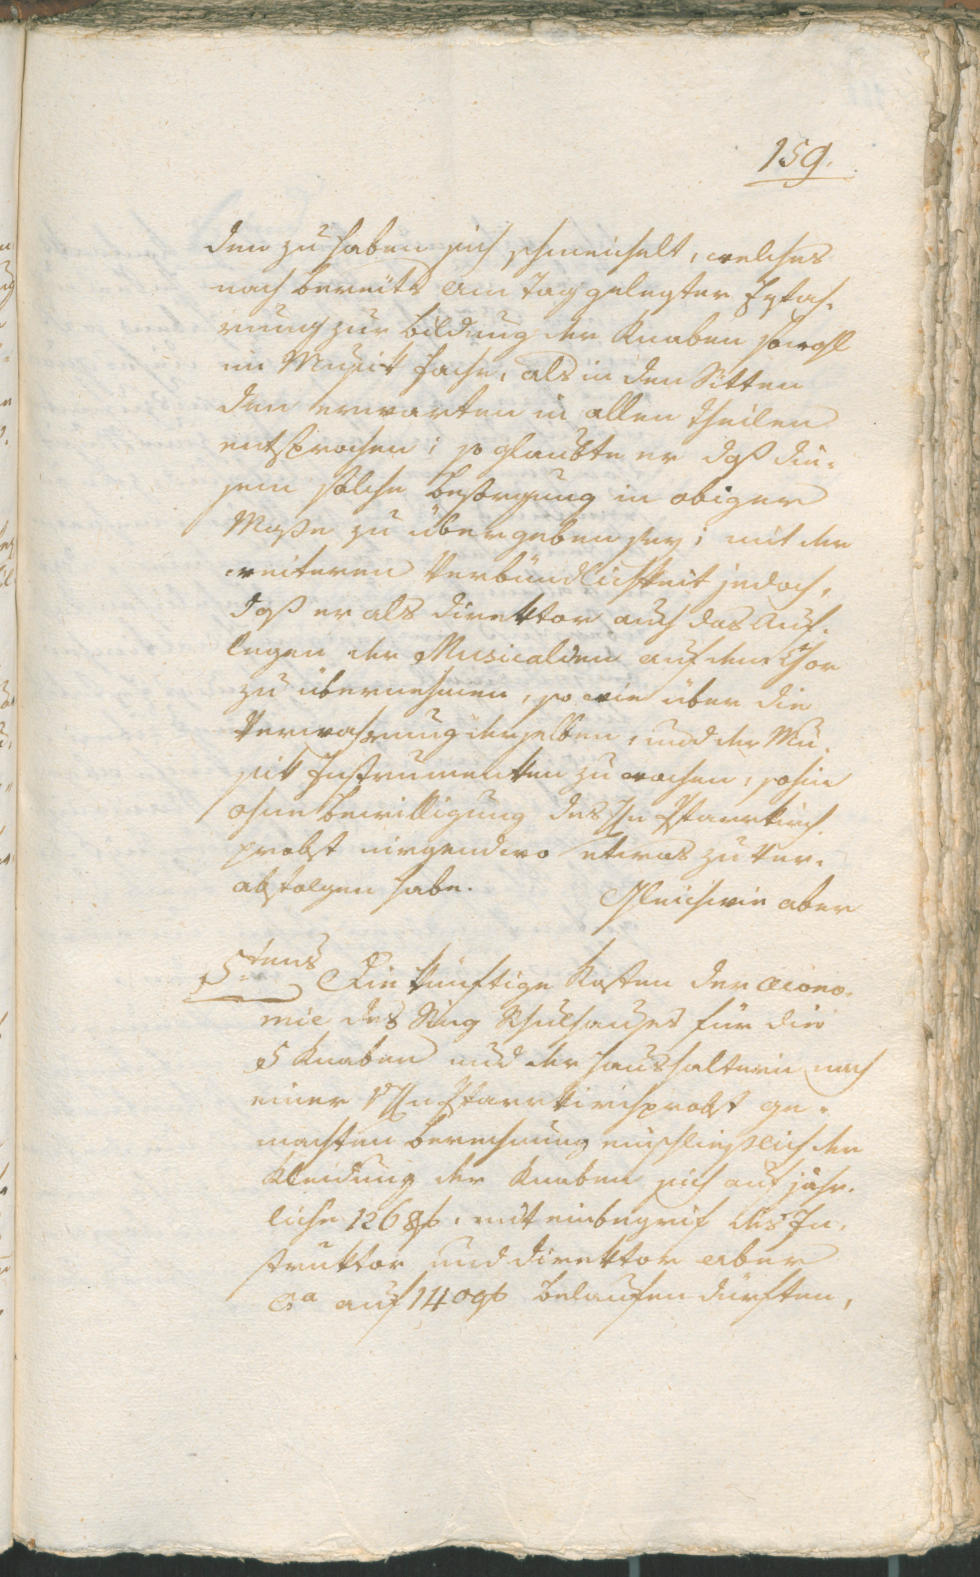 159.
den zu haben sich schmeichelt, welches
nach bereits am Tag gelegter Erfah¬
rung zur Bildung der Knaben sowohl
im Musick Fache, als in den Sitten
den erwarten in allen Theilen
entsprochen; so glaubte er daß die¬
sem solche Besorgung in obiger
Maße zu übergeben sey; mit der
weiteren Verbündlichkeit jedoch,
daß er als Direktor auch das Auf¬
legen der Musicalien auf dem Chor
zu übernehmen, so wie über die
Verwahrung derselben, und der Mu¬
sick Instrumenten zu wachen, sohin
ohne Bewilligung des Hn Pfarrkirch
probst nirgendwo etwas zu ver¬
abfolgen habe.
Gleichwie aber
5tens Die künftige Kosten der Oecono¬
mie des Sing Schulhauses für die
5 Knaben und der Haushälterin nach
einer v Hn Pfarrkirchprobst ge¬
machten Berechnung einschließlich der
Kleidung der Knaben sich auf jähr¬
liche 1268 f. mit einbegrif des In¬
struktor und Direktor aber
Ca auf 1409 f belaufen dürften,